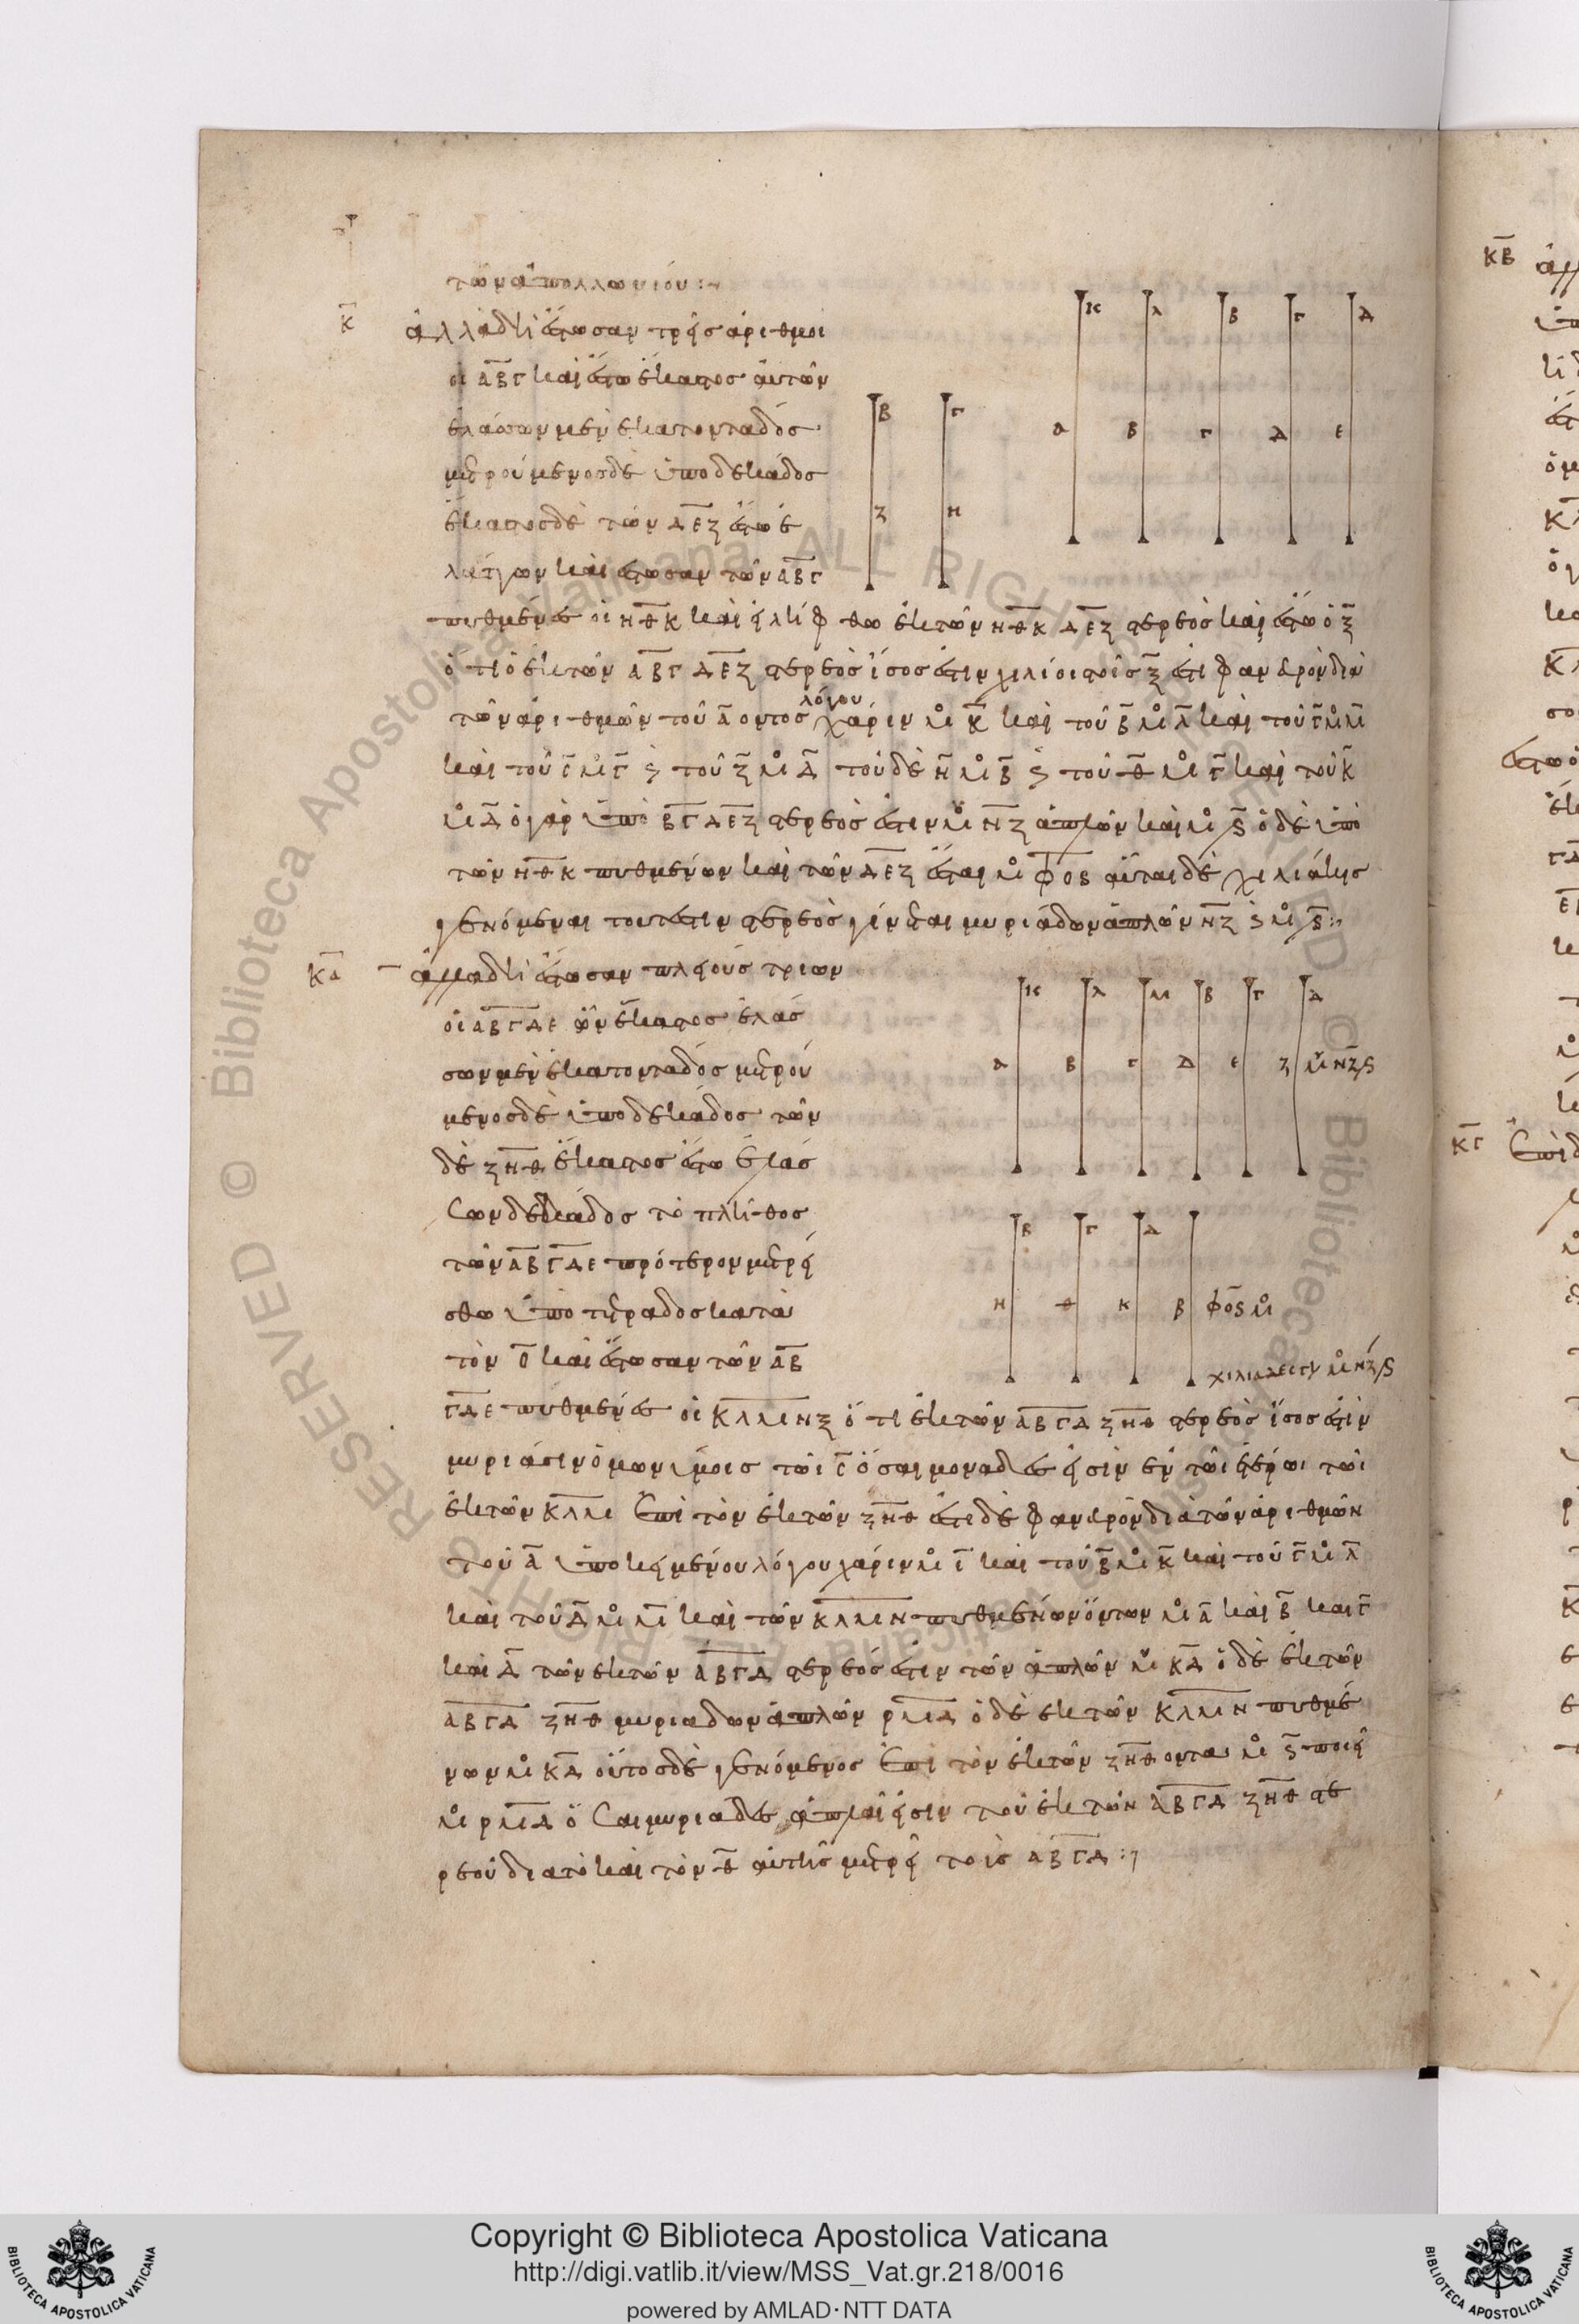 τῶν ἀπολλωνίου :~
κ̄
ἀλλὰ δὴ ἔστωσαν τρεῖς ἀριθμοὶ
οἱ Α Β Γ καὶ ἔστω ἕκαστος αὐτῶν
ἐλάσσων μὲν ἑκατοντάδος
μετρούμενος δὲ ὑπὸ δεκάδος
ἕκαστος δὲ τῶν Δ Ε Ζ ἔστω ἐ
λάττων καὶ ἔστωσαν τῶν Α Β Γ
πυθμένες οἱ Η Θ Κ καὶ εἰλήφθω ὁ ἐκ τῶν Η Θ Κ Δ Ε Ζ στερεὸς καὶ ἔστω ὁ ξ̄
ὅτι ὁ ἐκ τῶν Α Β Γ Δ Ε Ζ στερεὸς ἴσος ἐστὶν χιλίοις τοῖς ξ̄ ἔστι φανερὸν διὰ
τῶν ἀριθμῶν τοῦ ᾱ ὄντος λόγου χάριν μο κ̄ καὶ τοῦ β̄ μο λ̄ καὶ τοῦ γ̄ μο μ̄
μο δ̄ ὁ γὰρ ὑπὸ Β Γ Δ Ε Ζ στερεὸς ἐστὶν
τῶν Η Θ Κ πυθμένων καὶ τῶν Δ Ε Ζ ἔσται μο φος αὗται δὲ χιλιάκις
γενόμεναι τουτέστιν στερεὸς γίνεται μυριάδων ἁπλῶν νζ ς μο ς :~
κᾱ
ἀλλὰ δὴ ἔστωσαν πλείους τριῶν
οἱ Α Β Γ Δ Ε ὧν ἕκαστος ἐλάσ
σων μὲν ἑκατοντάδος μετρού
μενος δὲ ὑπὸ δεκάδος τῶν
δὲ Ζ Η Θ ἕκαστος ἔστω ἐλάσ
σων δεκάδος τὸ πλῆθος
τῶν Α Β Γ Δ Ε πρότερον μετρεί
σθω ὑπὸ τετράδος κατὰ
τὸν Ο καὶ ἔστωσαν τῶν Α Β
Γ Δ Ε πυθμένες οἱ Κ Λ Μ Ν Ξ ὅτι ὁ ἐκ τῶν Α Β Γ Δ Ζ Η Θ στερεὸς ἴσος ἐστὶν
μυριάσιν ὁμωνύμοις τῶι Ο ὅσαι μονάδες εἰσὶν ἐν τῶι στερεῶι τῶι
ἐκ τῶν Κ Λ Μ ἐπὶ τὸν ἐκ τῶν Ζ Η Θ ἔστι δὲ φανερὸν διὰ τῶν ἀριθμῶν
τοῦ ᾱ ὑποκειμένου λόγου χάριν μο ῑ καὶ τοῦ β̄ μο κ̄ καὶ τοῦ γ̄ μο λ̄
καὶ τοῦ δ̄ μο μ̄ καὶ τῶν Κ Λ Μ Ν πυθμένων ὄντων μο ᾱ καὶ β̄ καὶ γ̄
καὶ δ̄ τῶν ἐκ τῶν Α Β Γ Δ στερεός ἐστιν τῶν ἁπλῶν μυ κδ ὁ δὲ ἐκ τῶν
Α Β Γ Δ Ζ Η Θ μυριάδων ἁπλῶν ρμδ ὁ δὲ ἐκ τῶν Κ Λ Μ Ν πυθμέ
νων μο κδ οὗτος δὲ γενόμενος ἐπὶ τὸν ἐκ τῶν Ζ Η Θ ὄντα μο ς̄ ποιεῖ
μο ρμδ ὅσαι μυριάδες ἁπλαῖ εἰσιν τοῦ ἐκ τῶν Α Β Γ Δ Ζ Η Θ στε
ρεοῦ διὰ τὸ καὶ τὸν Θ αὐτῆς μετρεῖ τοῖς Α Β Γ Δ :~
Κ Λ Β Γ Δ
Α Β Γ Δ Ε
Β Γ
Ζ Η
Κ Λ Μ Β Γ Δ
Α Β Γ Δ Ε Ζ
Β Γ Δ
Η Θ Κ Β φος μο
κ̄β̄
κ̄γ̄
© Biblioteca Apostolica Vaticana ALL RIGHTS RESERVED
Copyright © Biblioteca Apostolica Vaticana
http://digi.vatlib.it/view/MSS_Vat.gr.218/0016
powered by AMLAD·NTT DATA
BIBLIOTECA APOSTOLICA VATICANA
BIBLIOTECA APOSTOLICA VATICANA